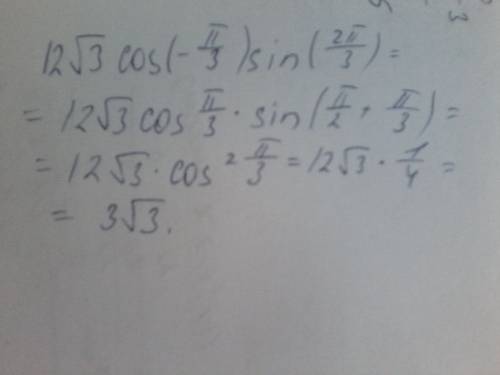 12√3 cos(-π/3)sin(2π/3)=
= 12√3 cos π/3 · sin(π/2 + π/3) =
= 12√3 · cos² π/3 = 12√3 · 1/4 =
= 3√3.